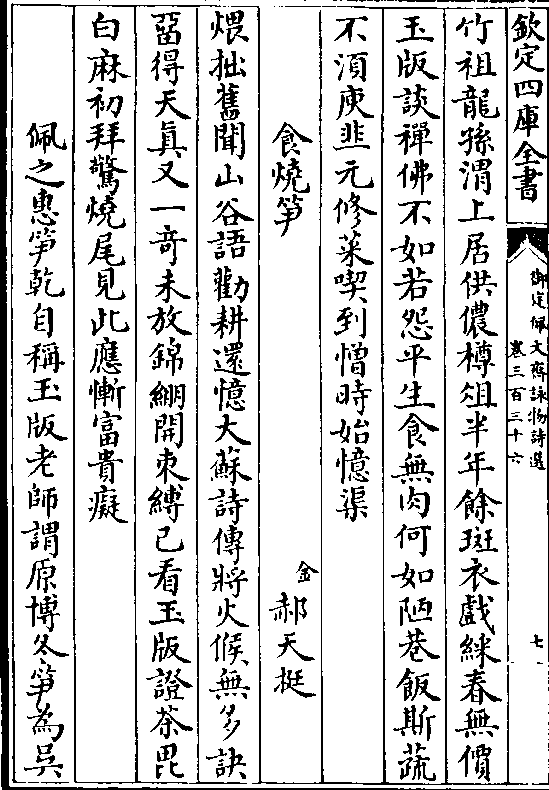 欽定四庫全書
御定佩文齋詠物詩選
卷三百三十六
七
竹祖龍孫渭上居供儂樽俎半年餘斑衣戲綵春無價
玉版談禪佛不如若怨平生食無肉何如陋巷飯斯蔬
不須庾韭元修菜喫到憎時始憶渠
食燒筍
金
郝天挺
煨拙舊聞山谷語勸耕還憶大蘇詩傳將火候無多訣
留得天真又一奇未放錦綳開束縛已看玉版證荼毘
白麻初拜驚燒尾見此應慚富貴癡
佩之惠筍乾自稱玉版老師謂原博冬筍為吳